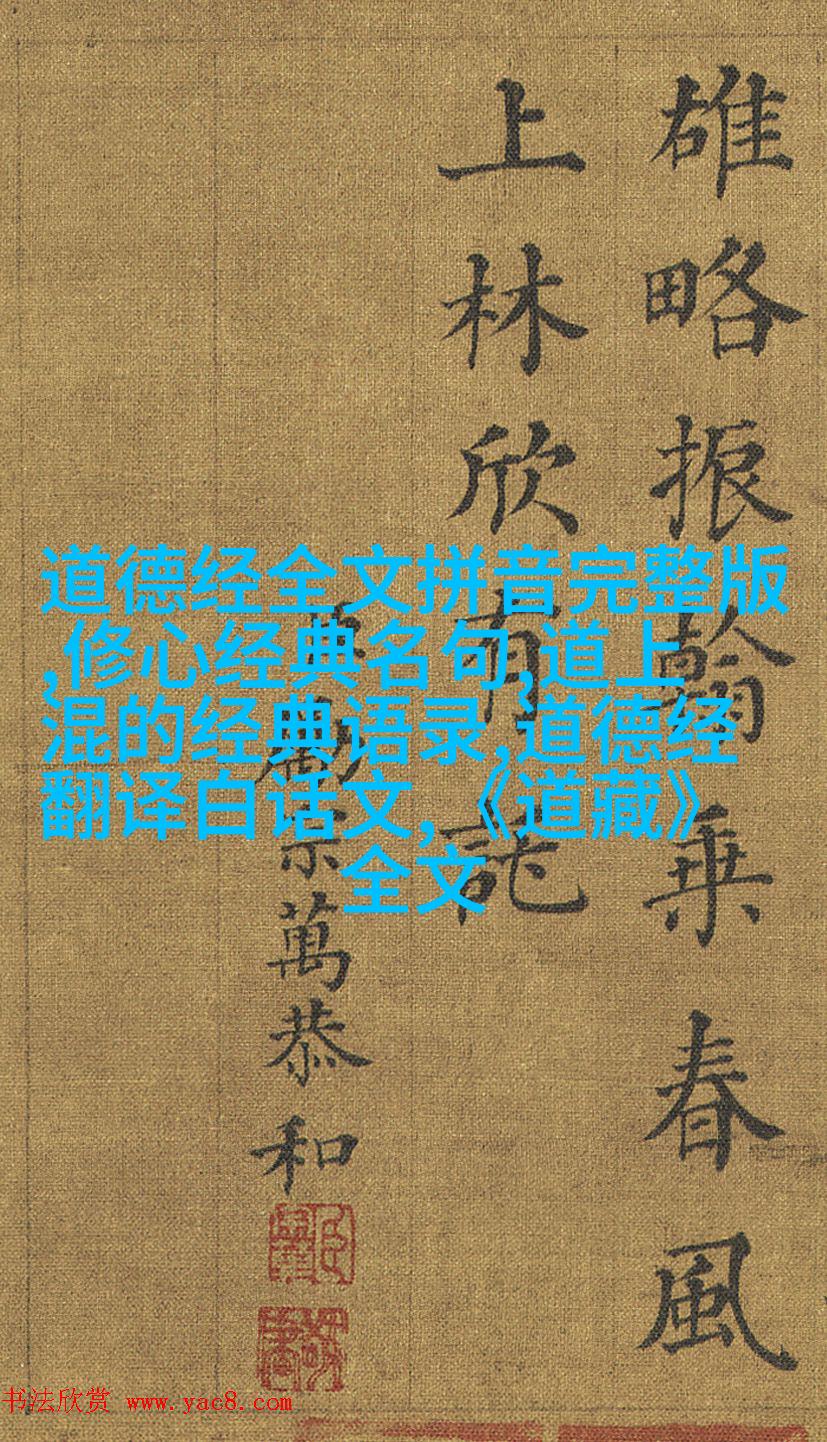 雄略振翰乗春風
上林欣有託
臣勵宗萬恭和
道德经全文拼音完整版
,修心经典名句,道上
混的经典语录,道德经
翻译白话文,《道藏》
全文
书法欣赏 www.yac8.com